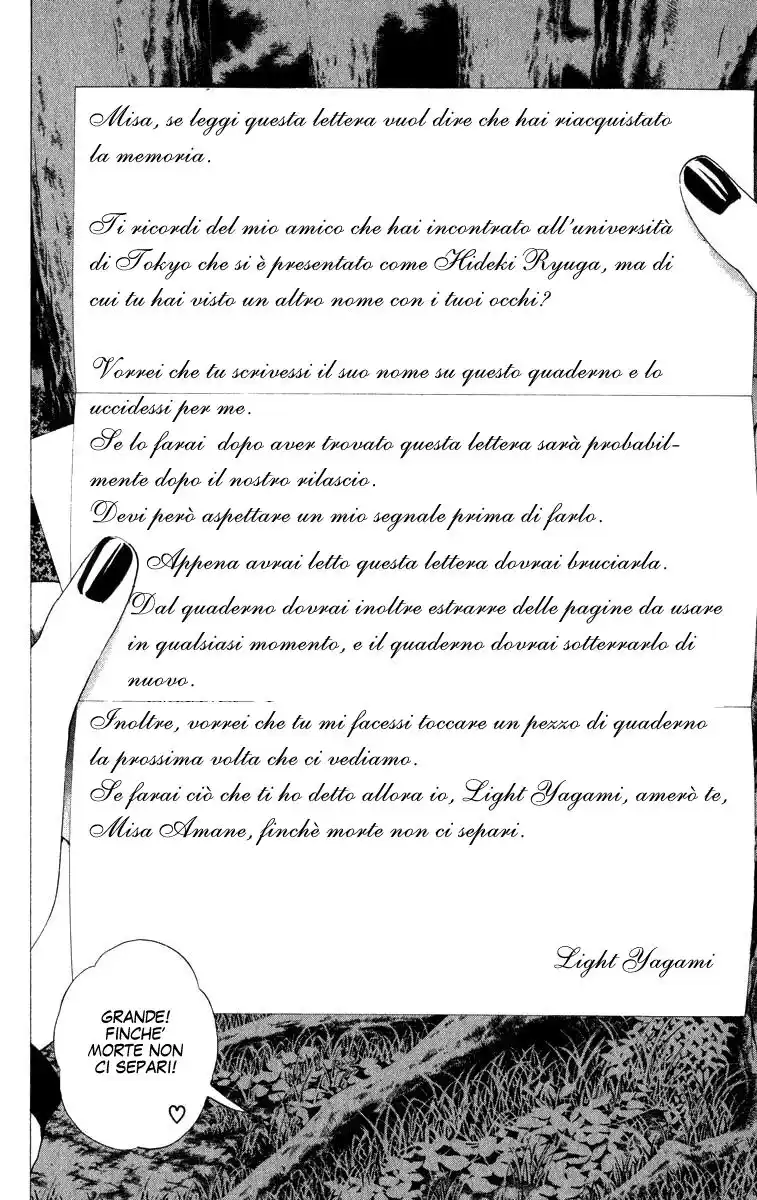 Misa, se leggi questa lettera vuol dire che hai riacquistato
la memoria.
Ti ricordi del mio amico che hai incontrato all'università
di Tokyo che si è presentato come Hideki Ryuga, ma di
cui tu hai visto un altro nome con i tuoi occhi?
Vorrei che tu scrivessi il suo nome su questo quaderno e lo
uccidessi per me.
Se lo farai dopo aver trovato questa lettera sarà probabil-
mente dopo il nostro rilascio.
Devi però aspettare un mio segnale prima di farlo.
Appena avrai letto questa lettera dovrai bruciarla.
Dal quaderno dovrai inoltre estrarre delle pagine da usare
in qualsiasi momento, e il quaderno dovrai sotterrarlo di
nuovo.
Inoltre, vorrei che tu mi facessi toccare un pezzo di quaderno
la prossima volta che ci vediamo.
Se farai ciò che ti ho detto allora io, Light Yagami, amerò te,
Misa Amane, finchè morte non ci separi.
Light Yagami
GRANDE!
FINCHE'
MORTE NON
CI SEPARI!
♡